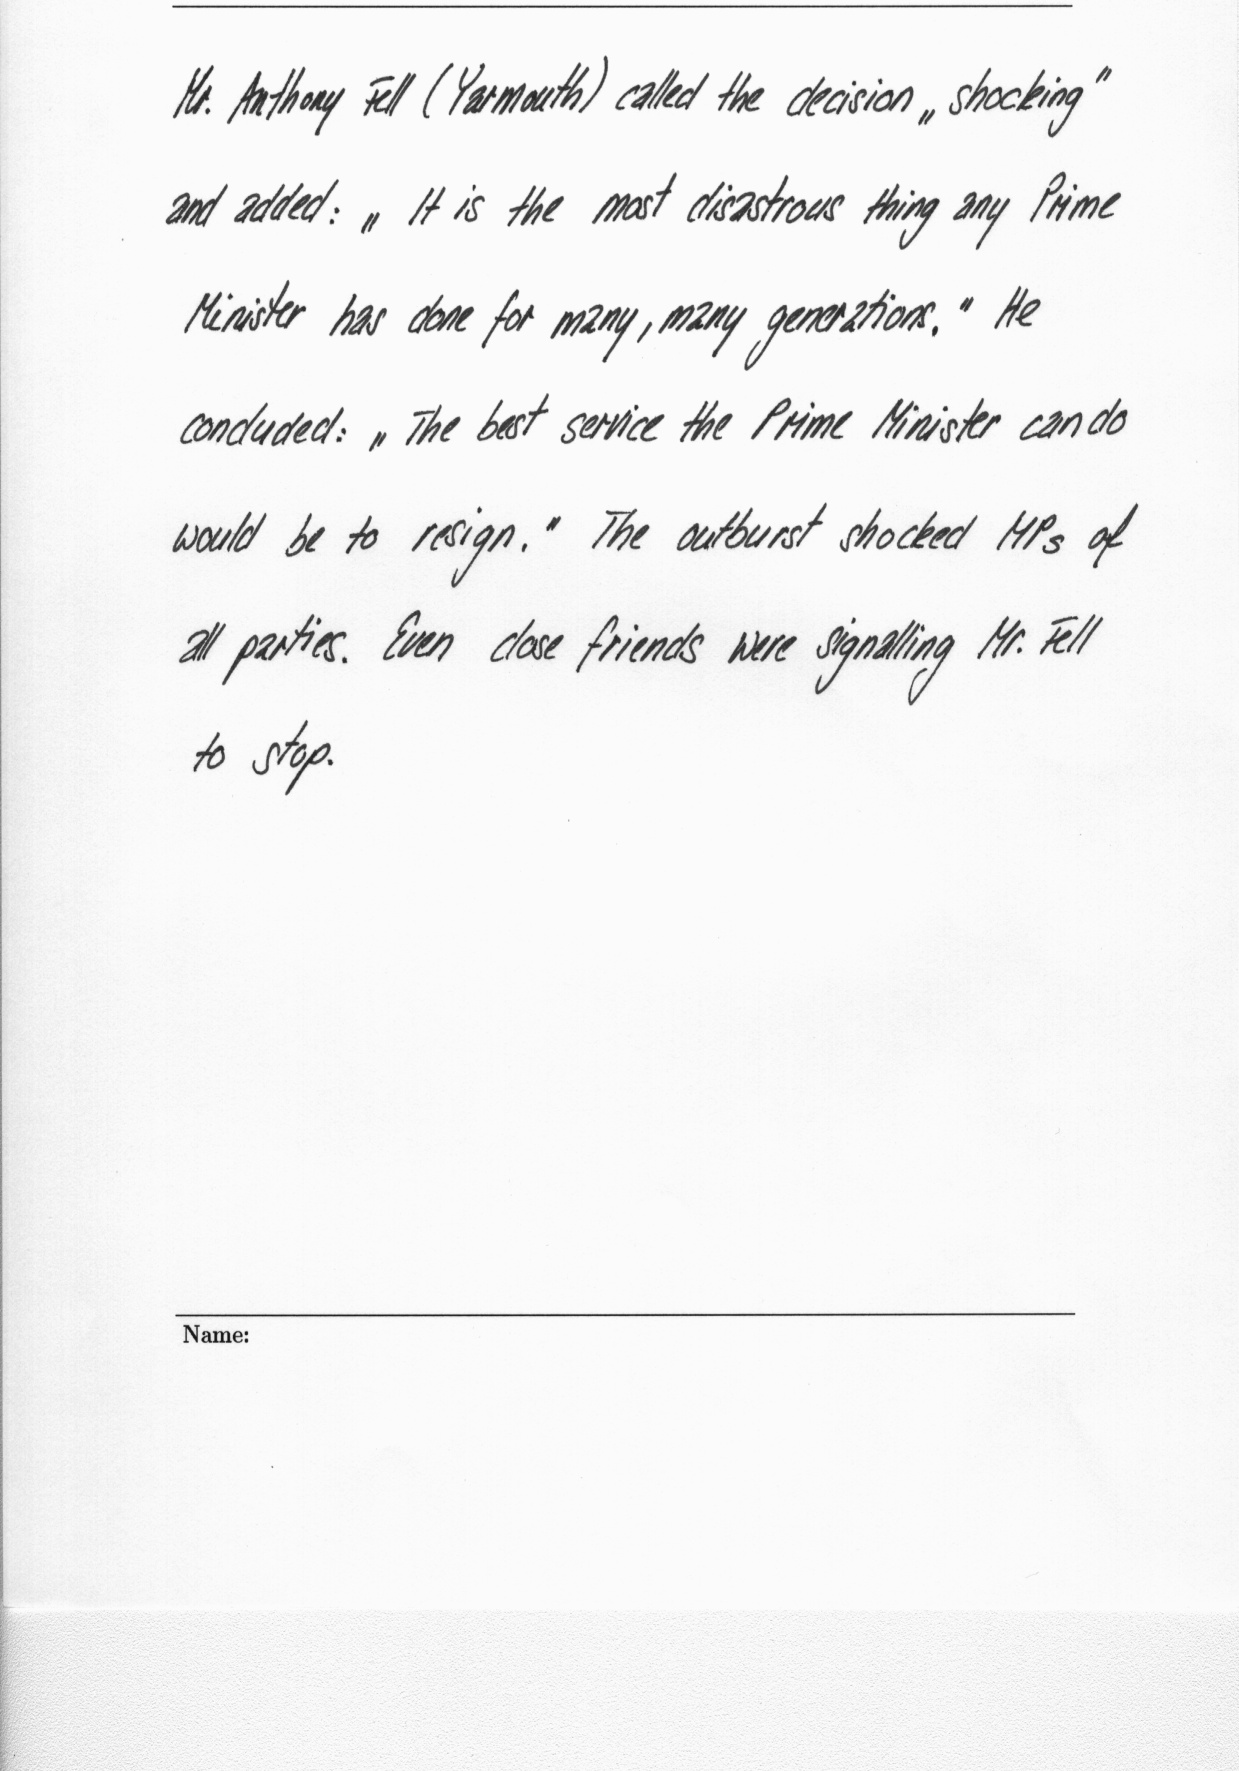 Mr. Anthony Fell (Yarmouth) called the decision „shocking"
and added: „It is the most disastrous thing any Prime
Minister has done for many, many generations." He
concluded: „The best service the Prime Minister can do
would be to resign." The outburst shocked MPs of
all parties. Even close friends were signalling Mr. Fell
to stop.
Name: